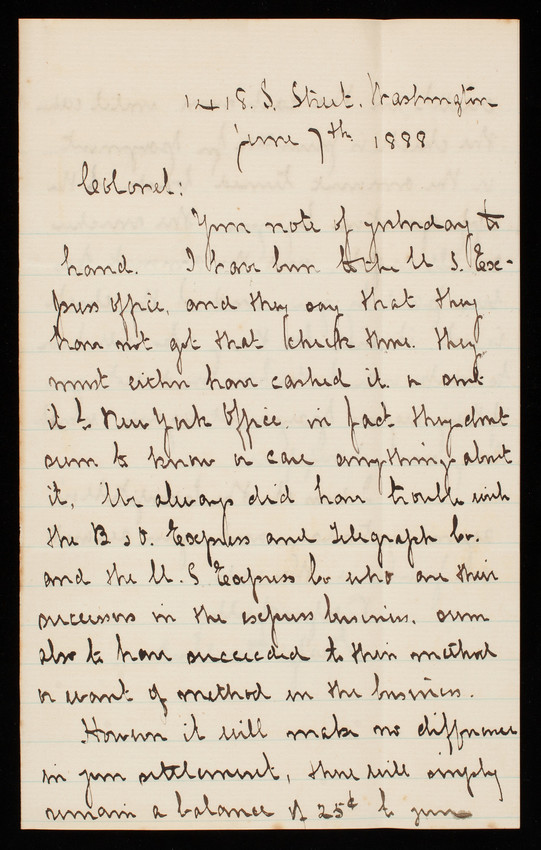 1418. S. Street. Washington
June 7th 1888
Colonel:
Your note of yesterday to
hand. I have been to the U. S. Ex-
press office, and they say that they
have not got that check there. they
must either have cashed it. or sent
it to New York Office. in fact they dont
seem to know or care anything about
it, We always did have trouble with
the B & O. Express and Telegraph Co.
and the U. S Express Co who are their
successors in the express business. seem
also to have succeeded to their method
or want of method in the business.
However it will make no difference
in your settlement, there will simply
remain a balance of 25¢ to your